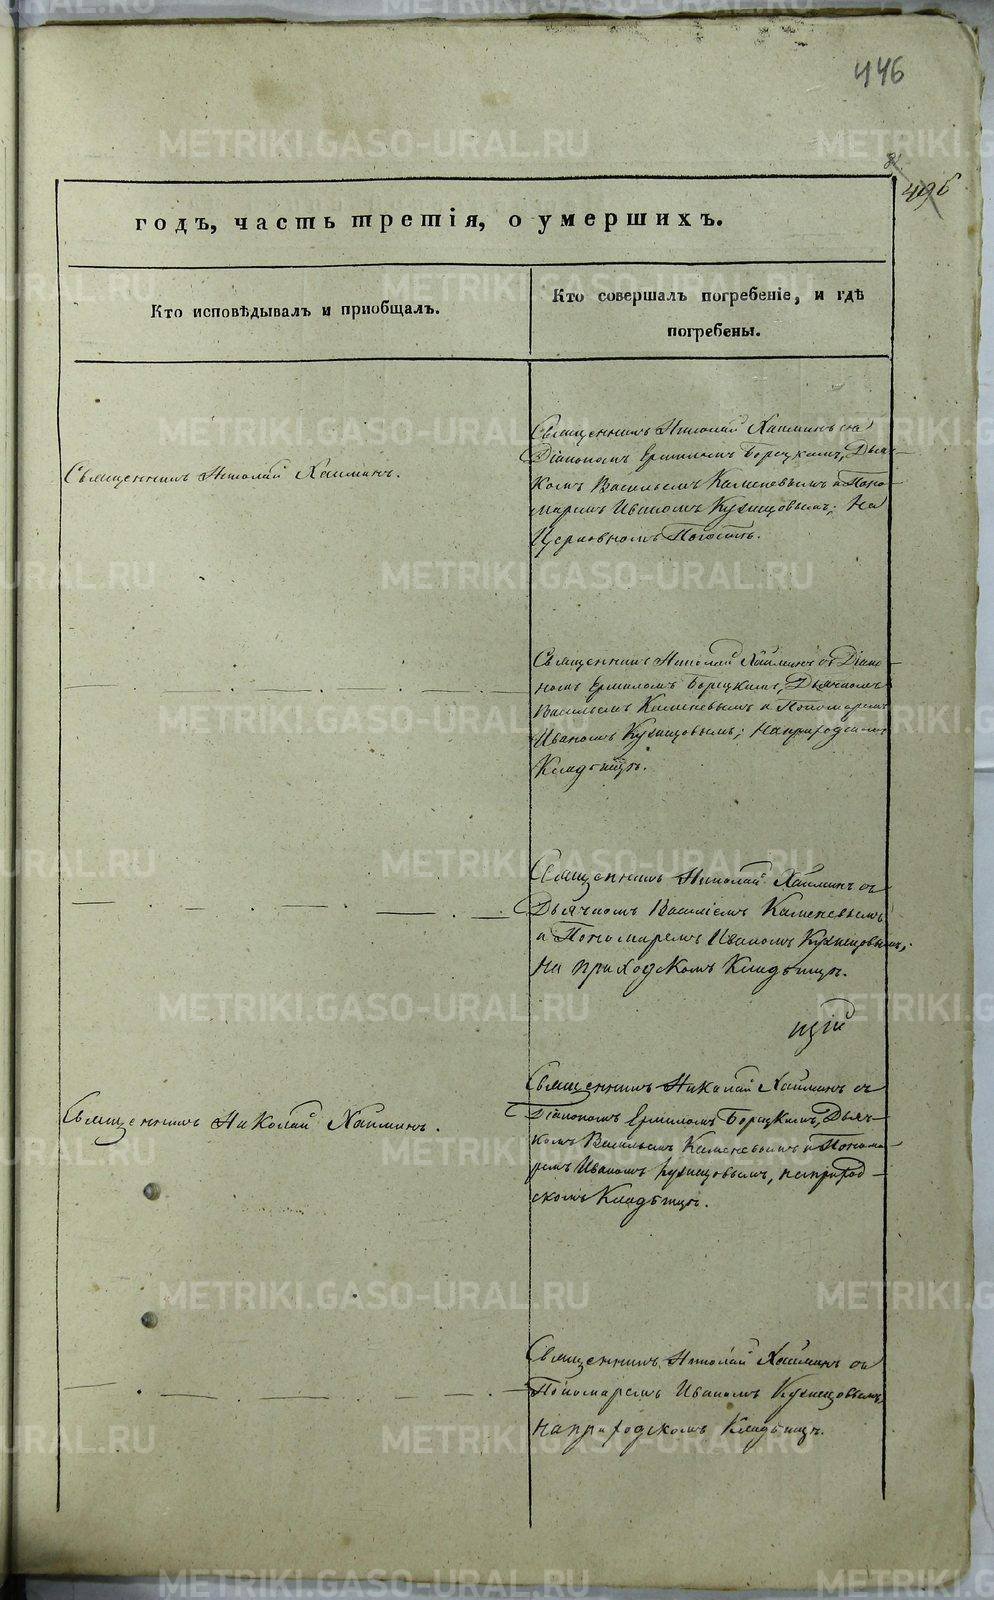 446
496
годъ, часть третія, о умершихъ.
Кто исповѣдывалъ и пріобщалъ.
Кто совершалъ погребеніе, и гдѣ
погребены.
Священникъ Николай Хлыминъ.
Священникъ Николай съ
Діакономъ Ермиломъ Борецкимъ, Дьяч-
комъ Васильемъ Каменевымъ и Поно-
маремъ Иваномъ Кузнецовымъ; На
Церковномъ Погостѣ.
Священникъ Николай съ Діако-
номъ Ермиломъ Борецкимъ, Дьячкомъ
Васильемъ Каменевымъ и Пономаремъ
Иваномъ Кузнецовымъ; На приходскомъ
Кладбищѣ.
Священникъ Николай съ
Дьячкомъ Василіемъ Каменевымъ
и Пономаремъ Иваномъ Кузнецовымъ;
На приходскомъ Кладбищѣ.
Священникъ Николай съ
Діакономъ Ермиломъ Борецкимъ, Дьяч-
комъ Васильемъ Каменевымъ и Понома-
ремъ Иваномъ Кузнецовымъ, на приход-
скомъ Кладбищѣ.
Священникъ Николай
Священникъ Николай съ
Пономаремъ Иваномъ Кузнецовымъ
На приходскомъ Кладбищѣ.
METRIKI.GASO-URAL.RU